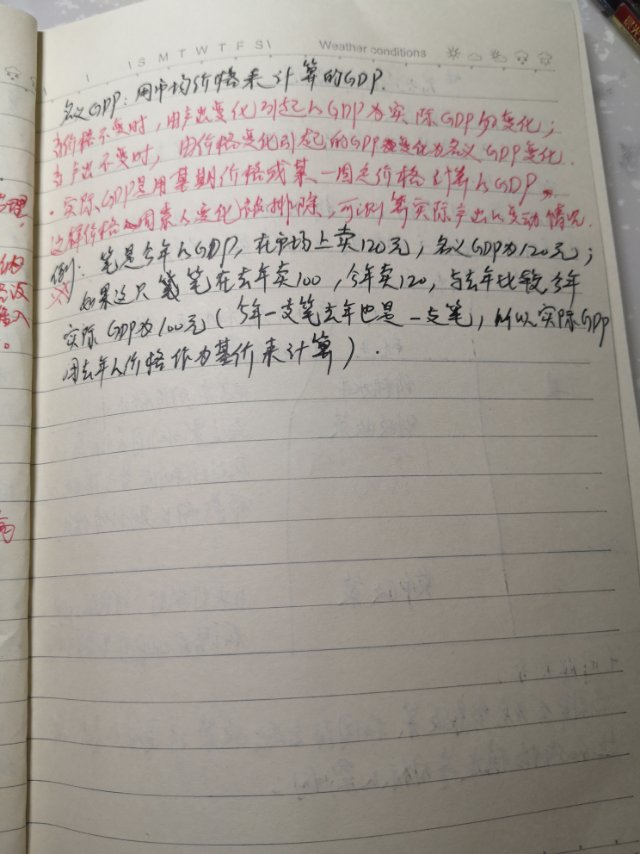 S M T W T F S
Weather conditions
名义GDP：用市均价格来计算的GDP.
当价格不变时，由产出变化引起的GDP为实际GDP的变化；
当产出不变时，由价格变化引起的GDP变化为名义GDP变化.
·实际GDP是用基期价格或某一固定价格计算的GDP。
这样价格的因素的变化被排除，可测算实际产出的变动情况.
例：笔是今年的GDP，在市场上卖120元，名义GDP为120元；
如果这只笔在去年卖100，今年卖120，与去年比较今年
实际GDP为100元（今年一支笔去年也是一支笔，所以实际GDP
用去年的价格作为基价来计算）.
理,